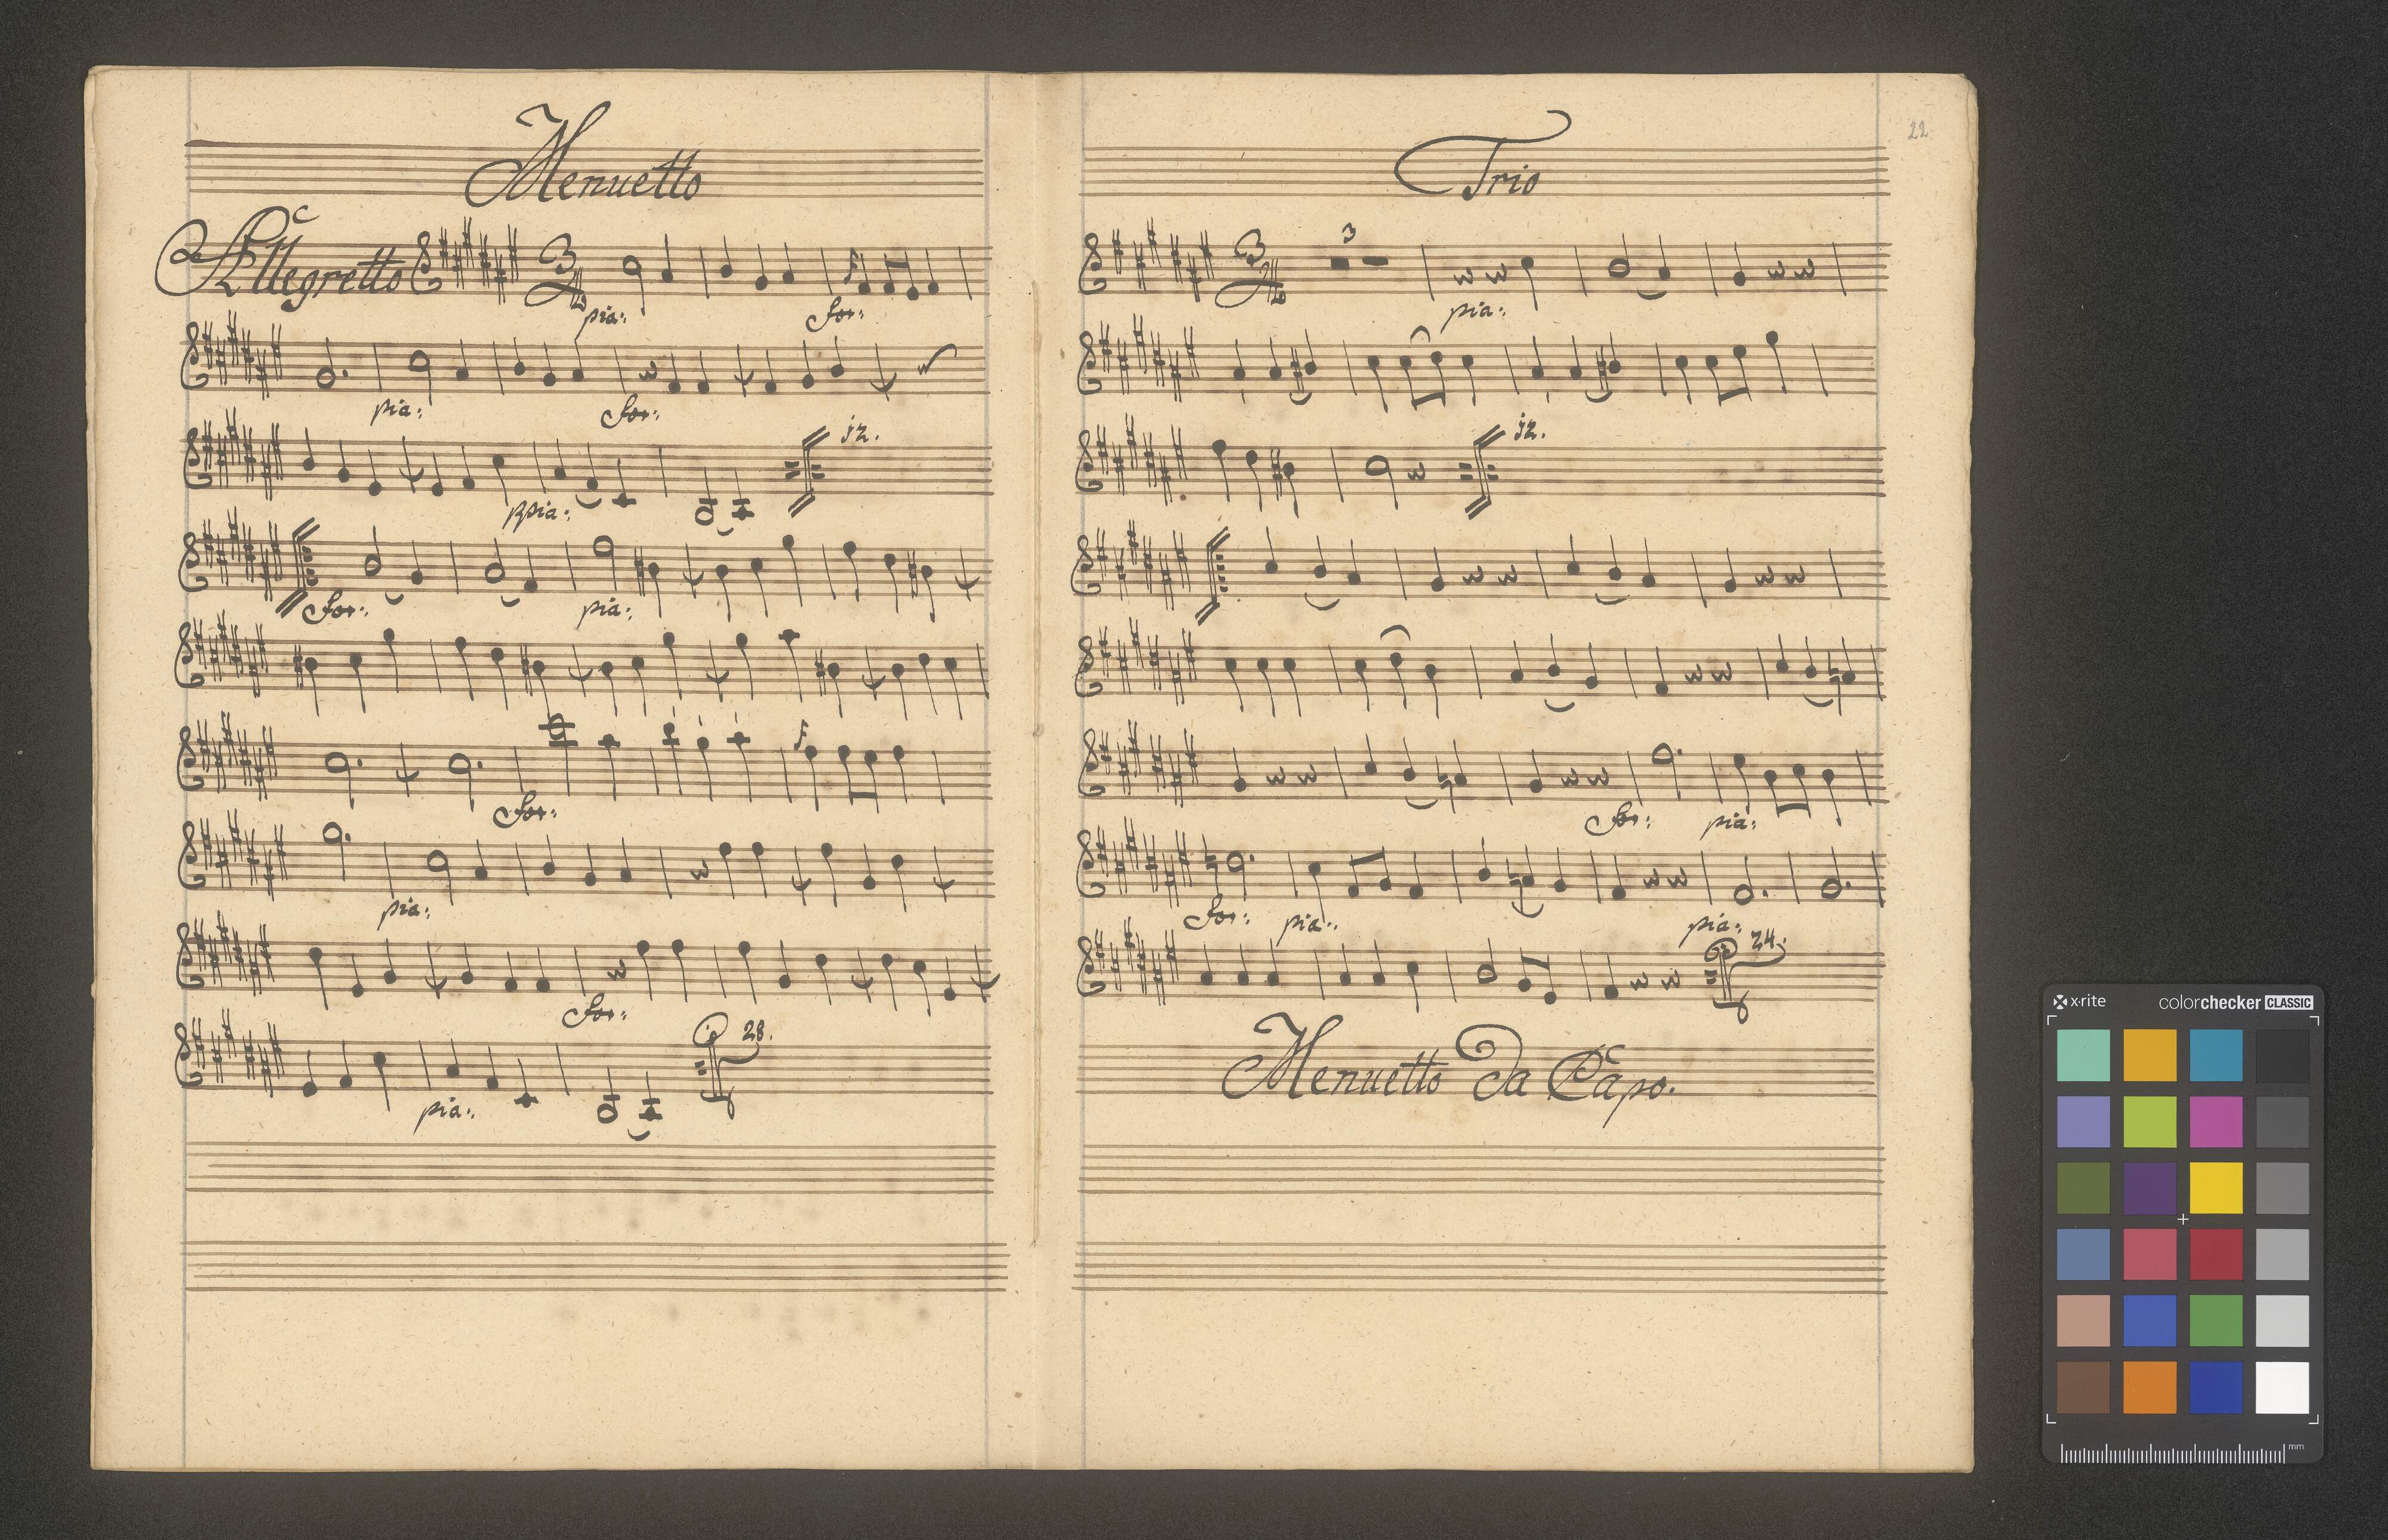 Menuetto
Allegretto
3
4
pia: for:
pia: for:
12.
ppia:
for: pia:
for:
pia:
for:
28.
pia:
22
Trio
3
3
4
pia:
12.
for: pia:
for: pia: pia:
24.
Menuetto Da Capo.
x-rite colorchecker CLASSIC
mm